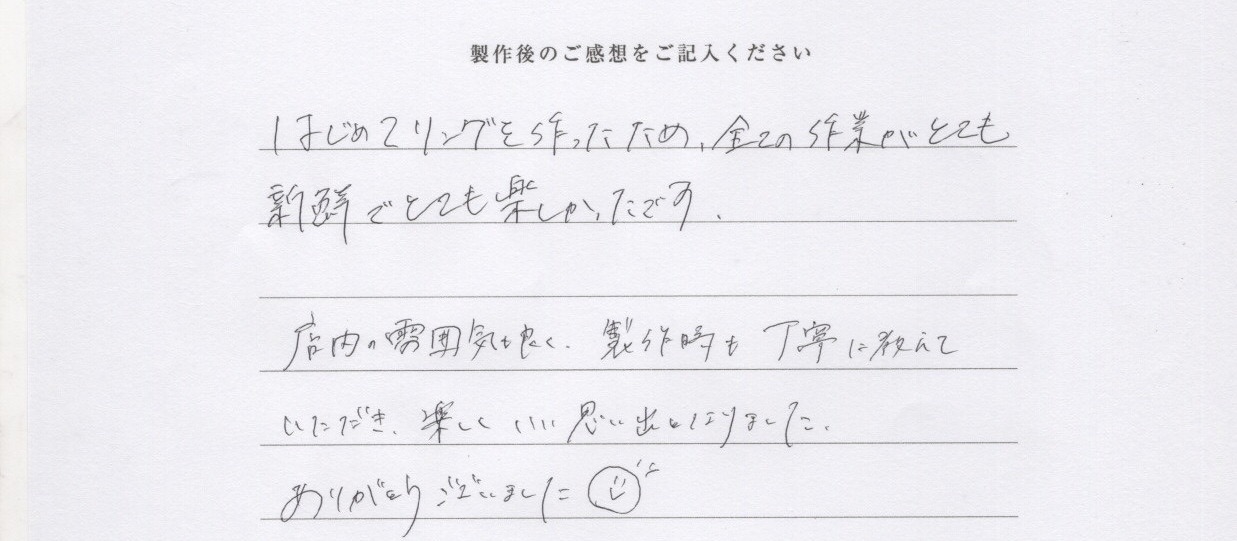 製作後のご感想をご記入ください
はじめてリングを作ったため、全ての作業がとても
新鮮でとても楽しかったです。
店内の雰囲気も良く、製作時も丁寧に教えて
いただき、楽しくいい思い出となりました。
ありがとうございました